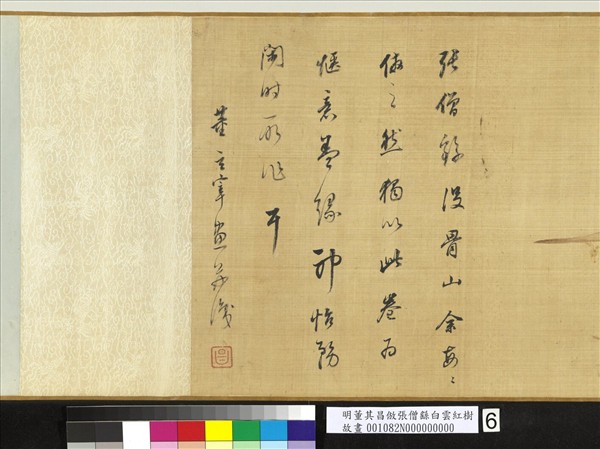 張僧繇沒骨山余每〻
倣之然猶以此卷為
愜意蓋緣神怡務
閒時所作耳
董玄宰畫并識
昌
明董其昌倣張僧繇白雲紅樹
故畫 001082N000000000
6